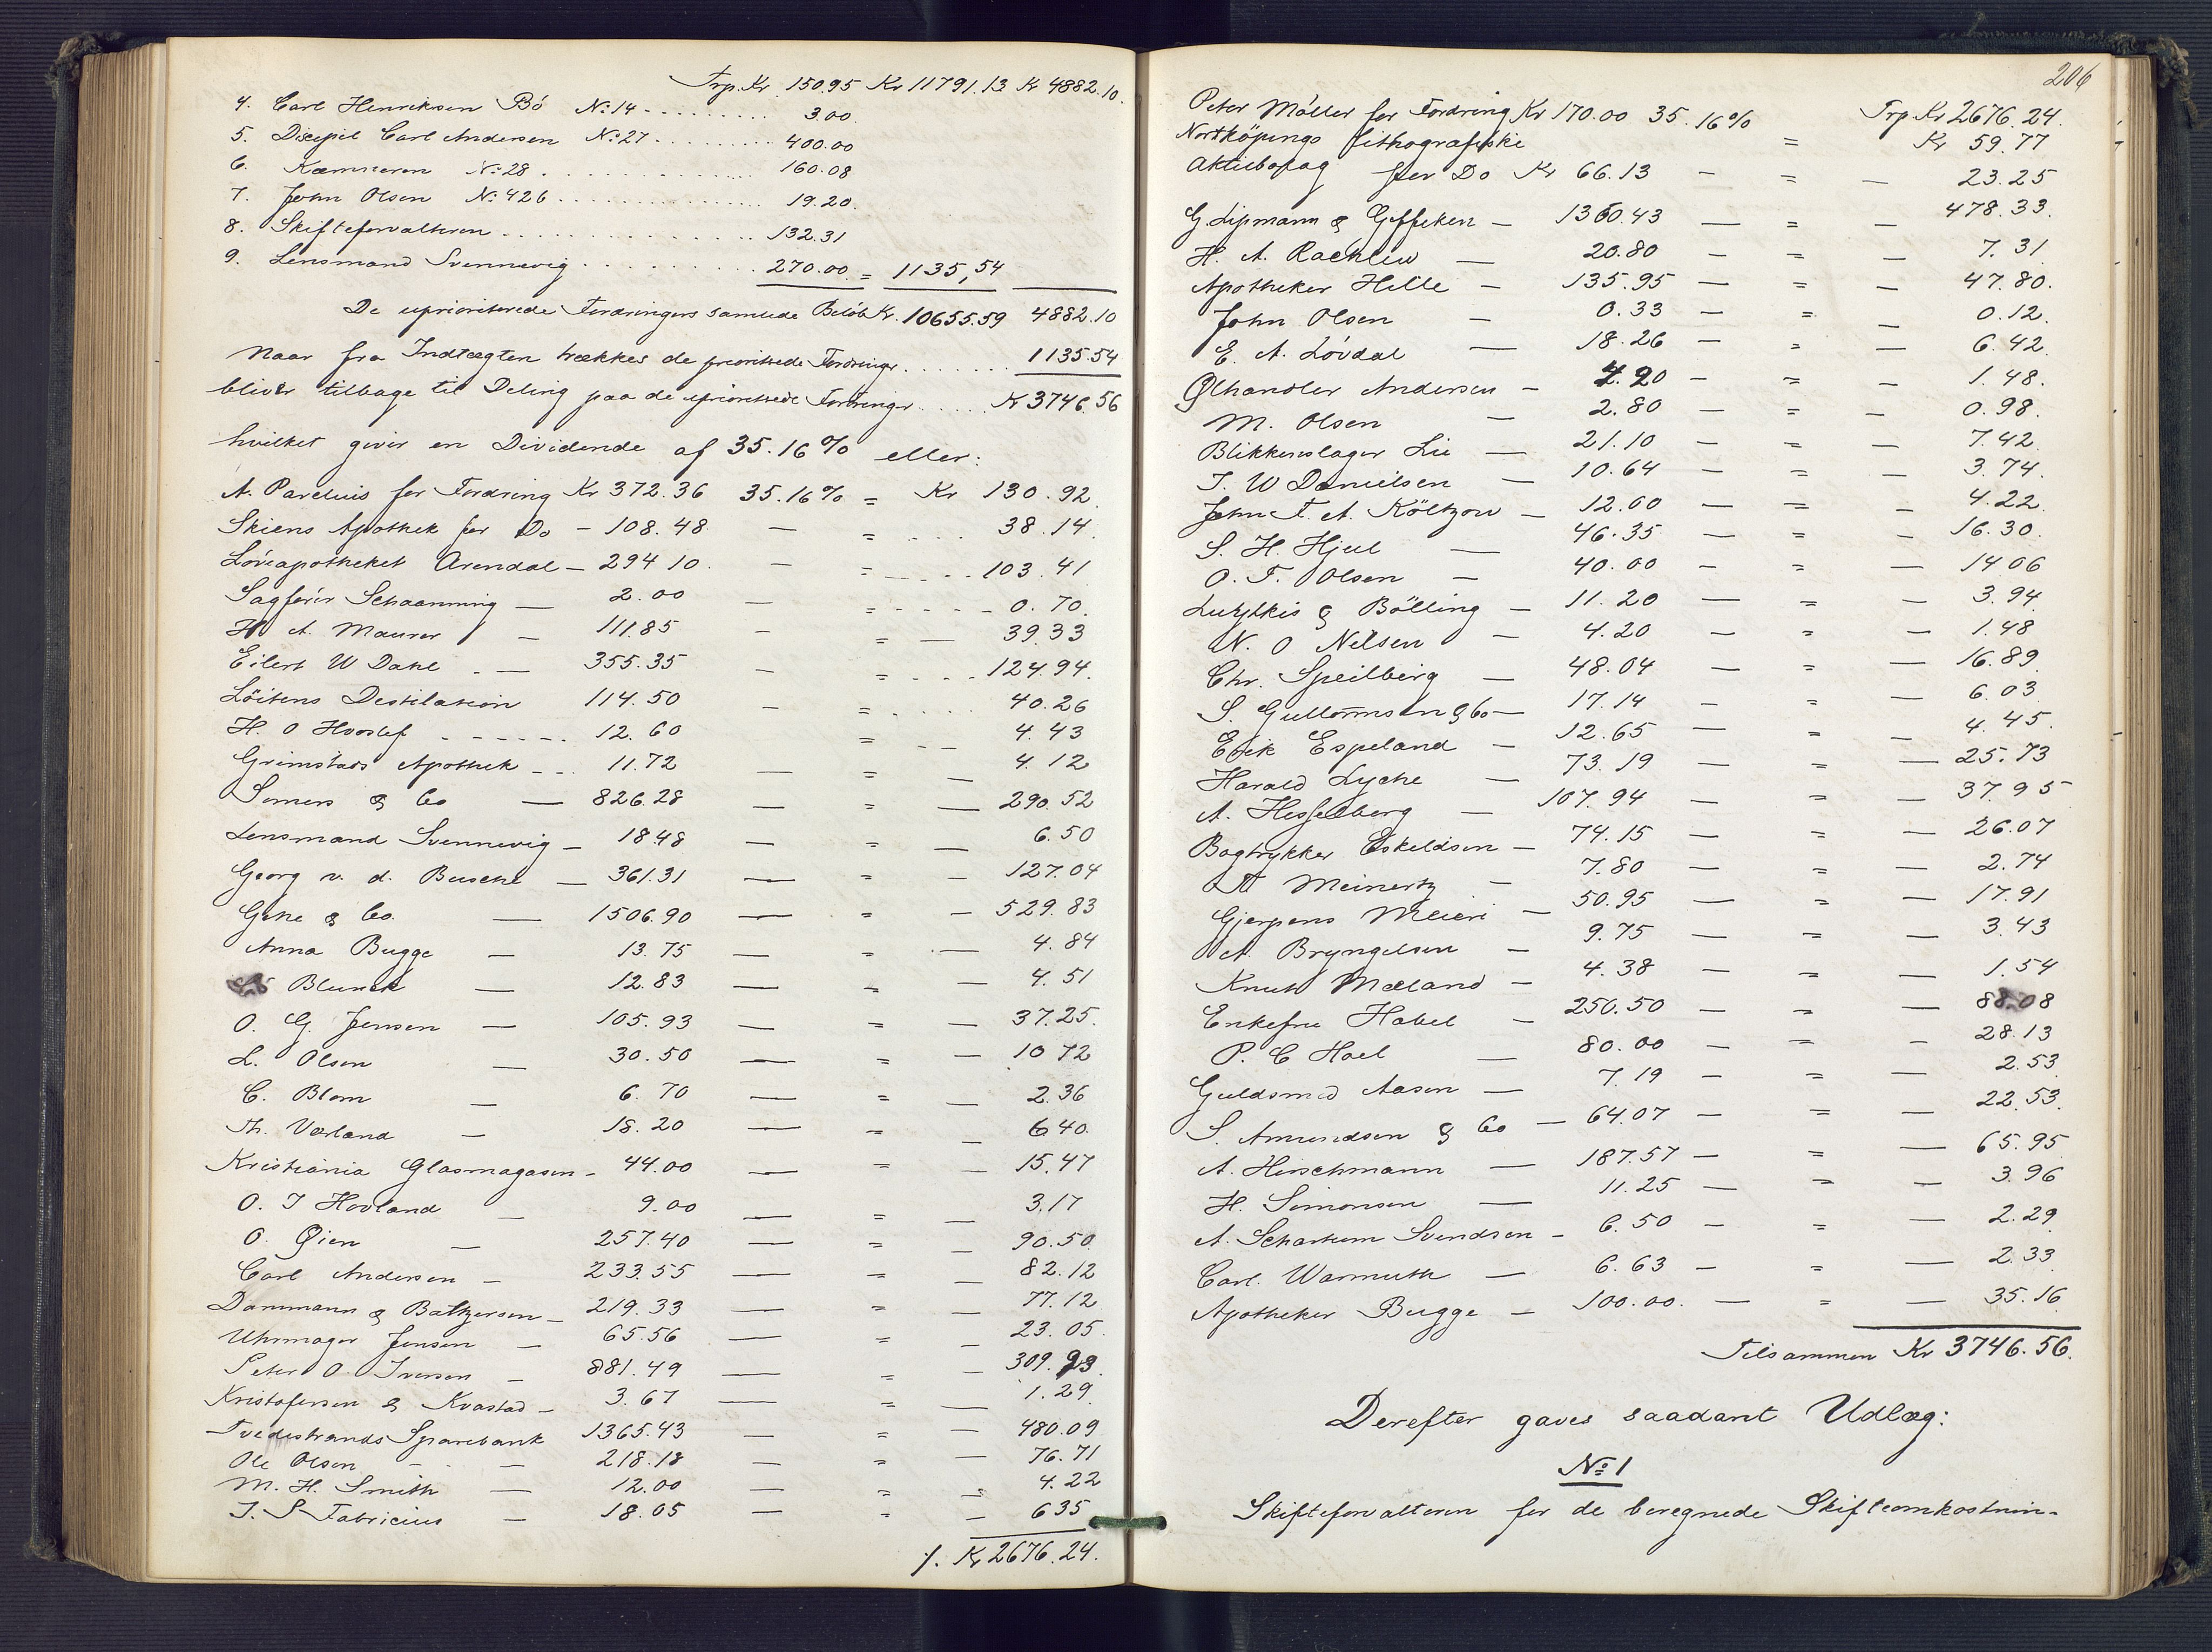 Trp. Kr 150.95 Kr 11791.13 Kr 4882.10.
4. Carl Henriksen Bö No 14 - . . . . . . . . 3.00
5. Discipel Carl Andersen No 27 . . . . . . . . . 400.00
6. Kæmneren No 28 . . . . . . . . . . . . . . 160.08
7. John Olsen No 426 . . . . . . . . . . . . . . 19.20.
8. Skifteforvalteren . . . . . . . . . . . . . . . . 132.31
9. Lensmand Svennevig . . . . . . . . . . 270.00 = 1135,54
De uprioriterede Fordringers samlede Belöb Kr. 10655.59 4882.10
Naar fra Indtægten trækkes de prioriterede Fordringer . . . . . . . 1135.54
bliver tilbage til Deling paa de uprioriterede Fordringer . . . . . Kr 3746.56
hvilket giver en Dividende af 35.16 % eller:
A. Parelius for Fordring Kr 372.36 35.16 % = Kr 130.92.
Skiens Apothek for Do - 108.48 — = . . . . 38.14.
Löveapotheket Arendal - 294 10. — = - . . . . 103.41
Sagförer Schaanning — 2.00 — = - . . . . - 0.70.
H A. Maurer — 111.85 — = — 39.33
Eilert W Dahl - — 355.35 — = . . . . 124.94.
Löitens Destilation 114.50 — = . . . . 40.26
H. O Hvoslef - - - - - - 12.60 = - — 4.43
Grimstads Apothek - - - 11.72 — = — 4.12
Somers & Co — 826.28 — = — 290.52
Lensmand Svennevig — 18.48 — = — 6.50
Georg v. d. Busche — 361.31 — = — 127.04
Gehe & Co. — 1506.90 — = — 529.83
Anna Bugge — 13.75 — = — 4.84
Blunck — 12.83 — = — 4.51
O. G. Jensen — 105.93 — = — 37.25.
L. Olsen — 30.50 — = — 10 72
C. Blom — 6.70 — = — 2.36
Th. Værland — 18.20 — = — 6 40.
Kristiania Glasmagasin - 44.00 — = — 15.47
O. J Hovland — 9.00 — = — 3.17
O. Øien — 257.40 — = — 90.50
Carl Andersen — 233.55 — = — 82.12
Dammann & Baltzersen — 219.33 — = — 77.12
Uhrmager Jensen — 65.56 — = — 23.05.
Peter O. Iversen — 881.49 — = — 309.93
Kristofersen & Kvastad — 3.67 — = — 1.29
Tvedestrands Sparebank 1365.43 — = — 480.09
Ole Olsen - - — 218.18 — = — 76.71
M. H. Smith — 12.00 — = — 4.22
J. S Fabricius — 18.05 — = — 6 35
/. Kr 2676.24.
206
Trp Kr 2676.24.
Peter Möller for Fordring Kr 170.00 35.16 % = Kr 59.77
Nortköpings Lithografiske
Aktiebolag for Do Kr 66.13 — = — 23.25
G. Lipmann & Geffeken — 1360.43 — = — 478.33.
H. A. Rachlew — 20.80 — = — 7.31
Apotheker Helle — 135.95 — = — 47.80.
John Olsen — 0.33 — = — 0.12.
E. A. Lövdal — 18.26 — = — 6.42
Ølhandler Andersen — 4.20 — = — 1.48.
M. Olsen — 2.80 — = — 0.98.
Blikkenslager Lie — 21.10 — = — 7.42
J. W Danielsen — 10.64 — = — 3.74.
John F. A. Költzow — 12.00 — = — 4.22
S. H. Hjul — 46.35 — = — 16.30
O. T. Olsen — 40.00 — = — 14 06
& Bölling — 11.20 — = — 3.94
N. O Nilsen — 4.20 — = — 1.48
Chr. Speilberg — 48.04 — = — 16.89
S. Gullormsen & Co — 17.14 — = — 6.03
Erik Espeland — 12.65 — = — 4.45.
Harald Lyche — 73.19 — = — 25.73
A. Hesselberg — 107.94 — = — 37.95
Bogtrykker Eskeldsen — 74.15 — = — 26.07
A Meinertz — 7.80 — = — 2.74
Gjerpens Meieri — 50.95 — = — 17.91
A. Bryngelsen — 9.75 — = — 3.43
Knut Mæland — 4.38 — = — 1.54
Enkefru Habel — 250.50 — = — 88.08
P. C Hoel — 80.00 — = — 28.13
Guldsmed Aasen — 7.19 — = — 2.53
S. Amundsen & Co — 64.07 — = — 22.53.
A. Hirschmann — 187.57 — = — 65.95
H. Simonsen — 11.25 — = — 3.96
A. Scharhum Svendsen — 6.50 — = — 2.29
Carl Warmuth — 6.63 — = — 2.33
Apotheker Bugge — 100.00. — = — 35.16
Tilsammen Kr 3746.56.
Derefter gaves saadant Udlæg:
No 1
Skifteforvalteren for de beregnede Skifteomkostnin-